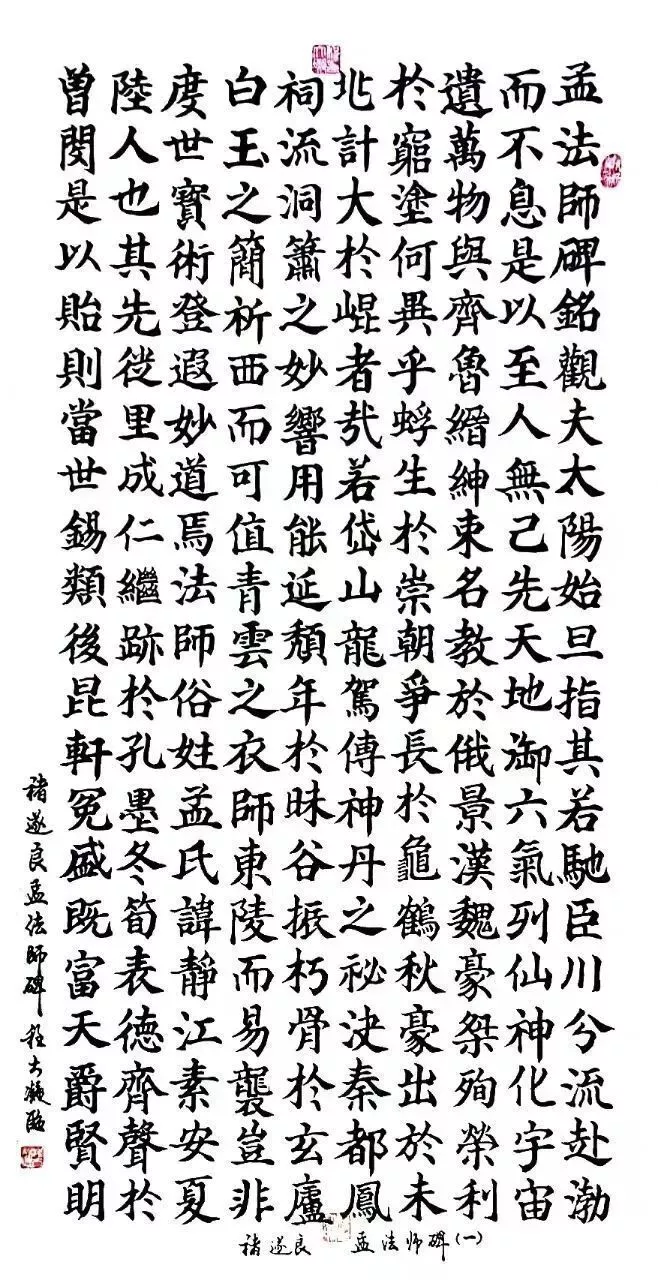 孟法師碑銘觀夫太陽始旦指其若馳臣川兮流赴渤
而不息是以至人無己先天地御六氣列仙神化宇宙
遺萬物與齊魯縉紳束名教於俄景漢魏豪桀殉榮利
於窮塗何異乎蜉生於崇朝爭長於龜鶴秋豪出於未
兆計大於崐者哉若岱山龍駕傳神丹之祕決秦都鳳
祠流洞簫之妙響用能延頹年於昧谷振朽骨於玄廬
白玉之簡祈西而可值青雲之衣師東陵而易襲豈非
度世寶術登遐妙道焉法師俗姓孟氏諱靜江素安夏
陸人也其先徙里成仁繼跡於孔墨冬筍表德齊聲於
曾閔是以貽則當世錫類後昆軒冕盛既富天爵賢明
褚遂良孟法師碑 程大臨
褚遂良 孟法师碑(一)